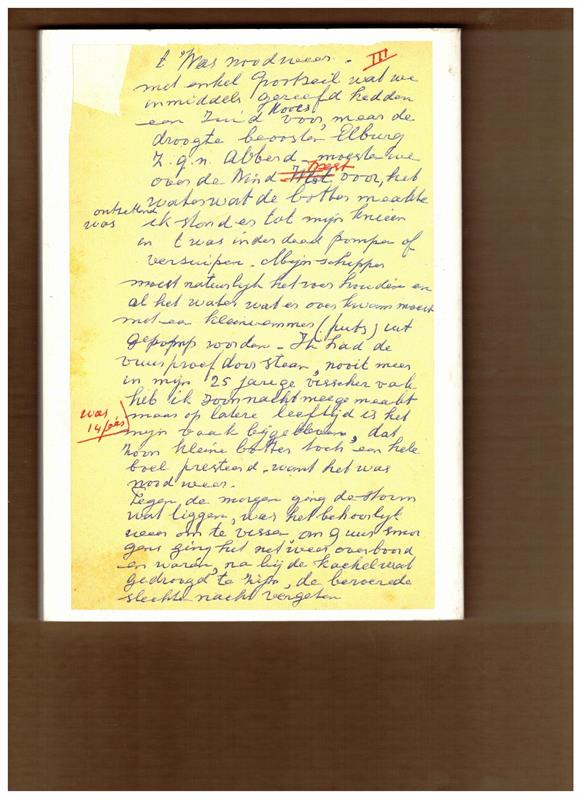 III
t Was noodweer.
met enkel Grootzeil wat we
inmiddels gereefd hedden
een Zuid Koers voor, maar de
droogte beoosten Elburg
Z.g.n. Abberd moesten we
over de Wind West voor, het
water wat de botter maakte
ontzettend was
ik stond er tot mijn knieën
in t was inderdaad pompen of
versuipen. Mijn schipper
moest natuurlijk het roer houden en
al het water wat er over kwam moest
met een kleine emmer (puts) uit
gepomp worden. Ik had de
vuurproef doorstaan, nooit meer
in mijn 25 jarige visscher vak
heb ik zoon nacht meege maakt
was 14 jaar
maar op latere leeftijd is het
mijn vaak bijgebleven, dat
zoon kleine botter toch een hele
boel presteerd. want het was
noodweer.
Tegen de morgen ging de storm
wat liggen, was het behoorlijk
weer om te vissen om 9 uur smor
gens ging het net weer overboord
en waren, na bij de kachel wat
gedroogd te zijn, de beroerde
slechte nacht vergeten